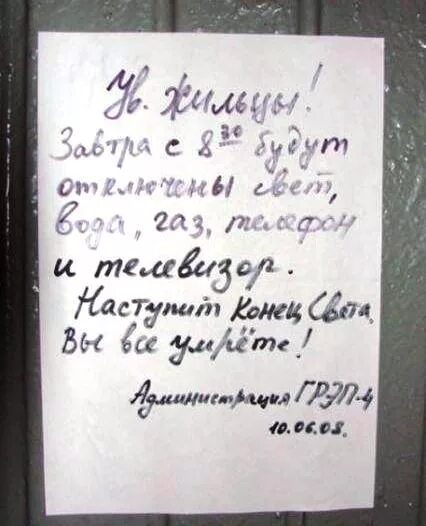 Ув. Жильцы!
Завтра с 8 30 будут
отключены свет,
вода, газ, телефон
и телевизор.
Наступит Конец Света.
Вы все умрёте!
Администрация ГРЭП-4
10.06.08.